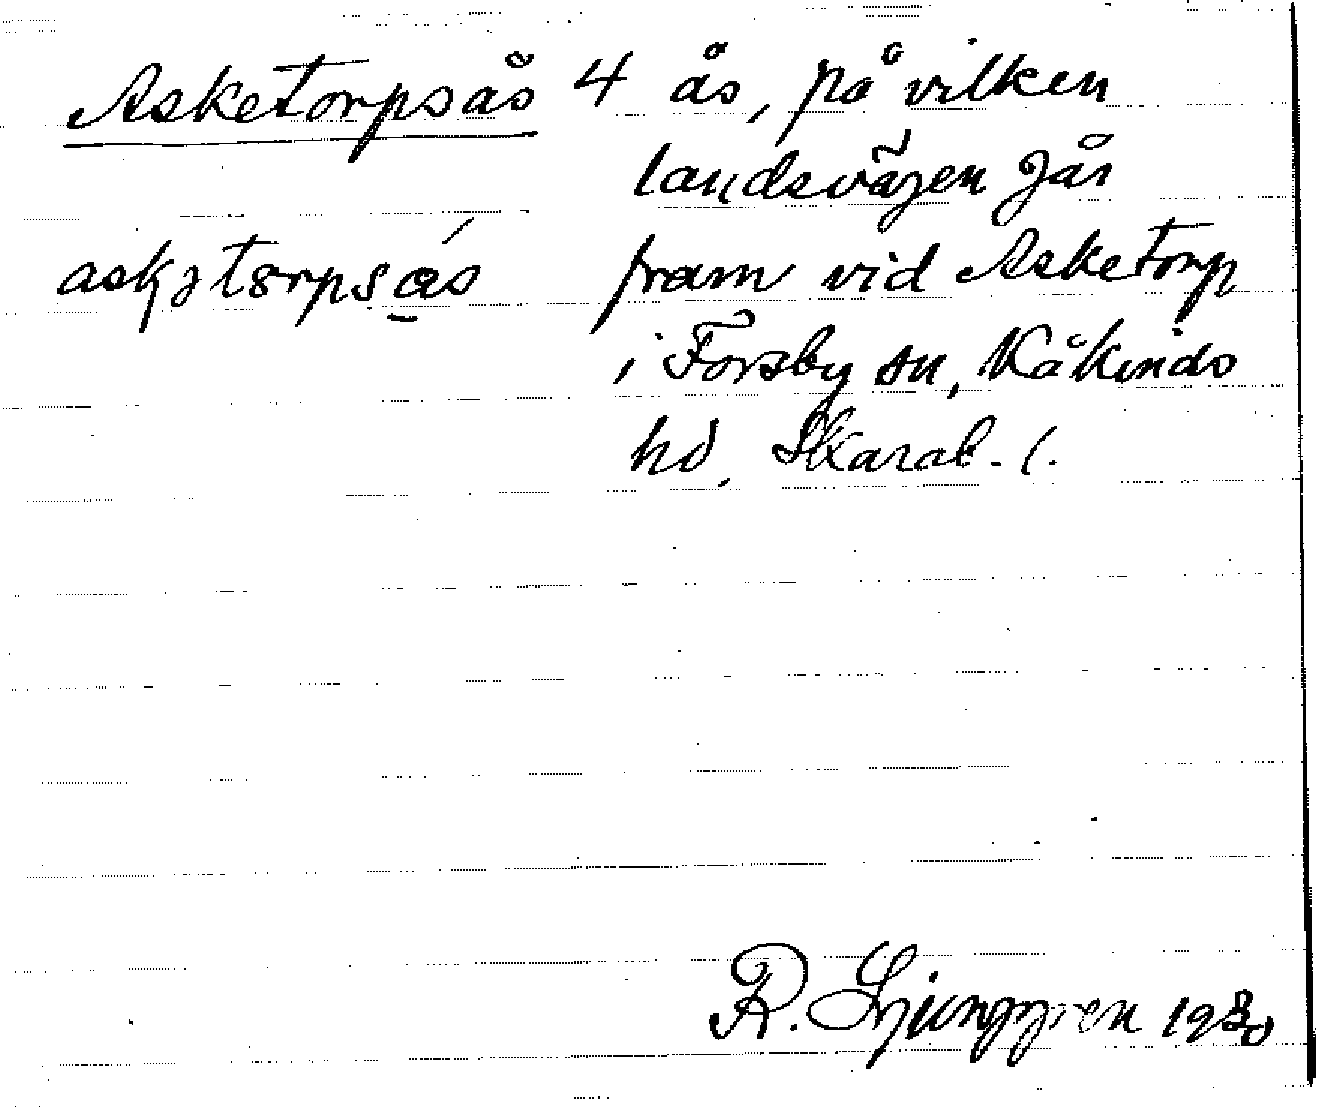 Asketorpsås 4 ås, på vilken
landsvägen går
askətɵrpsás fram vid Asketorp
i Forsby sn, Kåkinds
hd, Skarab. l.
R. Ljunggren 1930